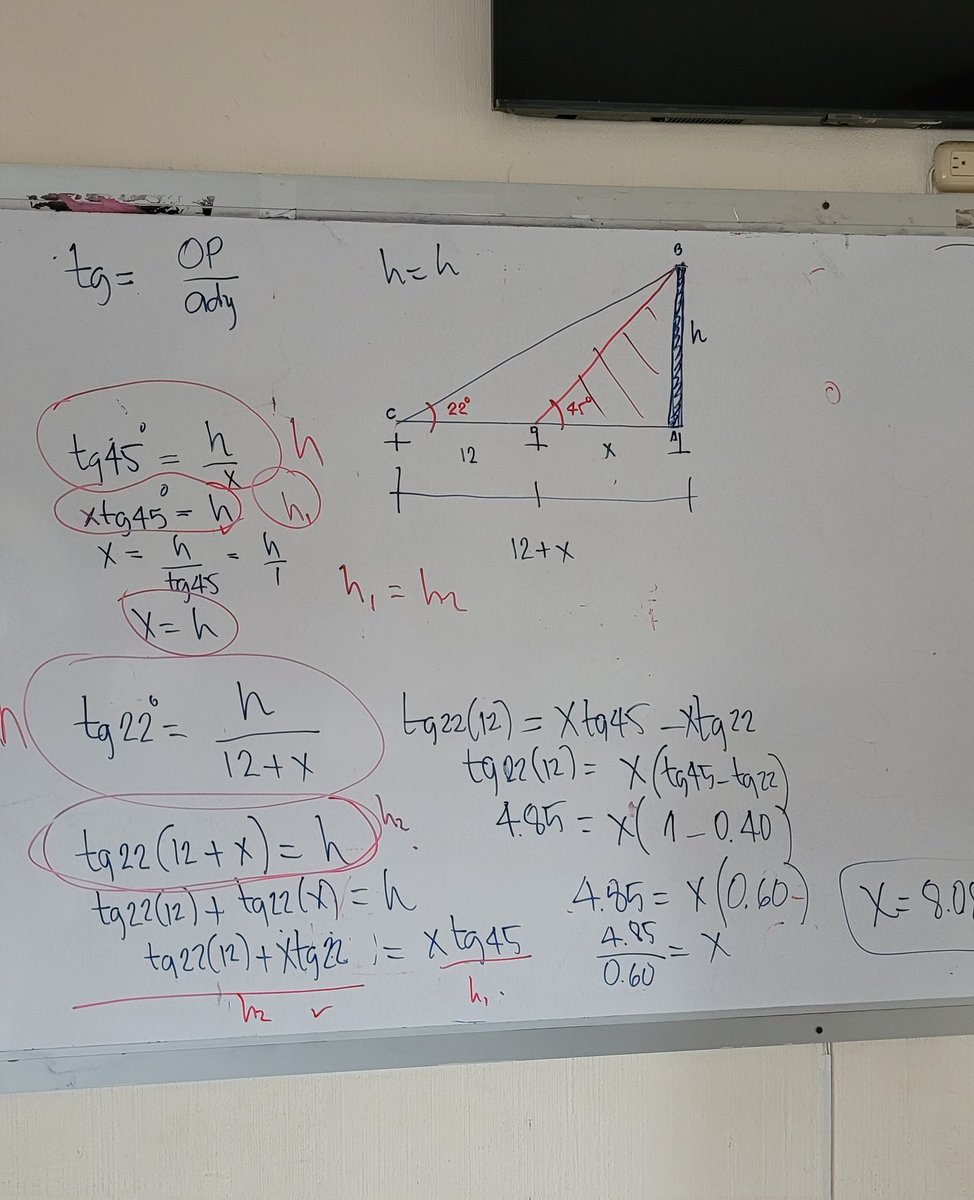 tg = OP/ady
h = h
B
h
C
22°
45°
A
12
x
12 + x
tg45° = h/x
h
xtg45° = h
h₁
x = h/tg45 = h/1
h₁ = h₂
x = h
tg22° = h/(12 + x)
h
tg22(12 + x) = h
h₂
tg22(12) + tg22(x) = h
tg22(12) + xtg22 = xtg45
h₂
h₁
tg22(12) = xtg45 - xtg22
tg22(12) = x(tg45 - tg22)
4.85 = x(1 - 0.40)
4.85 = x(0.60)
4.85/0.60 = x
x = 8.08